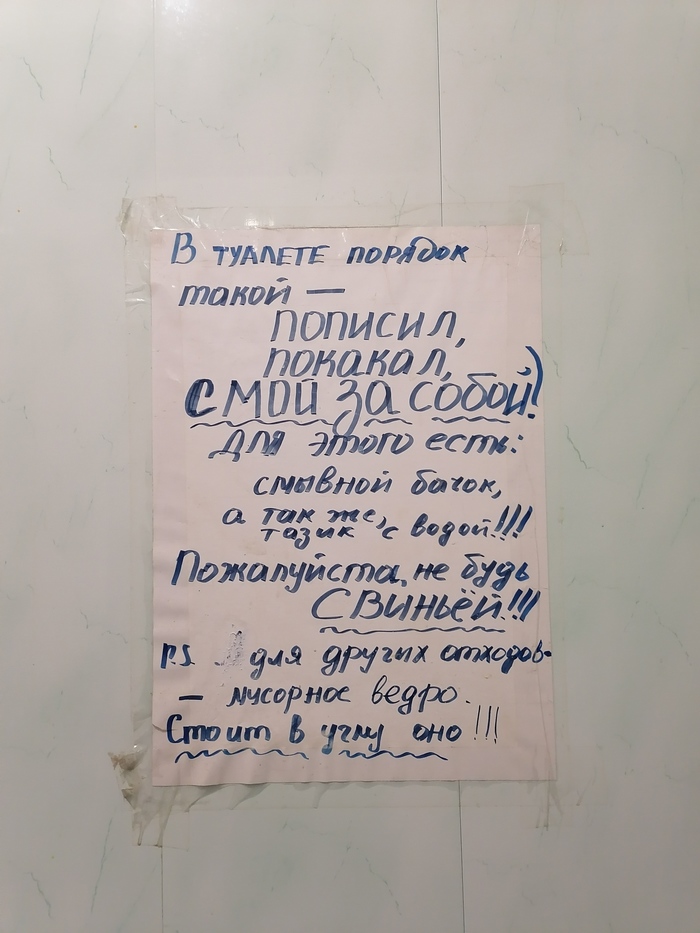 В ТУАЛЕТЕ ПОРЯДОК
такой —
ПОПИСИЛ,
покакал,
СМОЙ ЗА СОБОЙ!)
Для этого есть:
смывной бачок,
а так же,
тазик с водой!!!
Пожалуйста, не будь
СВИНЬЁЙ!!!
P.S. для других отходов-
— мусорное ведро.
Стоит в углу оно!!!